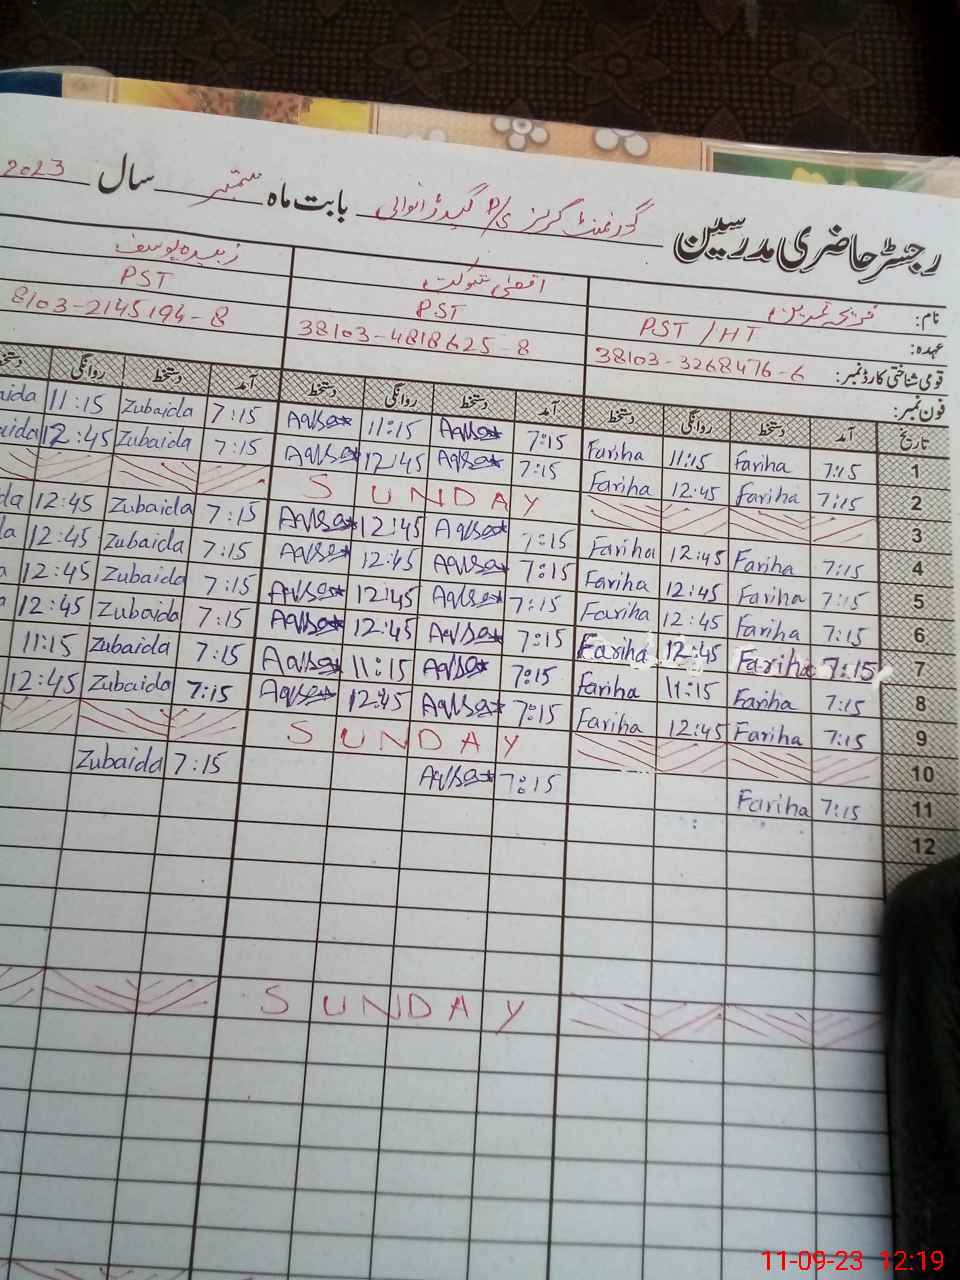 رجسٹر حاضری مدرسین گورنمنٹ گرلز P/S گیدڑانوالی بابت ماہ ستمبر سال 2023
نام: فریحہ ثمرین اقصیٰ شوکت زبیدہ یوسف
عہدہ: PST / HT PST PST
قومی شناختی کارڈ نمبر: 38103-3268476-6 38103-4818625-8 8103-2145194-8
فون نمبر:
تاریخ آمد دستخط روانگی دستخط آمد دستخط روانگی دستخط آمد دستخط روانگی دستخط
1 7:15 Fariha 11:15 Fariha 7:15 Aqsa 11:15 Aqsa 7:15 Zubaida 11:15 aida
2 7:15 Fariha 12:45 Fariha 7:15 Aqsa 12:45 Aqsa 7:15 Zubaida 12:45 aida
3 SUNDAY
4 7:15 Fariha 12:45 Fariha 7:15 Aqsa 12:45 Aqsa 7:15 Zubaida 12:45 da
5 7:15 Fariha 12:45 Fariha 7:15 Aqsa 12:45 Aqsa 7:15 Zubaida 12:45 a
6 7:15 Fariha 12:45 Fariha 7:15 Aqsa 12:45 Aqsa 7:15 Zubaida 12:45 a
7 7:15 Fariha 12:45 Fariha 7:15 Aqsa 12:45 Aqsa 7:15 Zubaida 12:45
8 7:15 Fariha 11:15 Fariha 7:15 Aqsa 11:15 Aqsa 7:15 Zubaida 11:15
9 7:15 Fariha 12:45 Fariha 7:15 Aqsa 12:45 Aqsa 7:15 Zubaida 12:45
10 SUNDAY
11 7:15 Fariha 7:15 Aqsa 7:15 Zubaida
12
SUNDAY
11-09-23 12:19